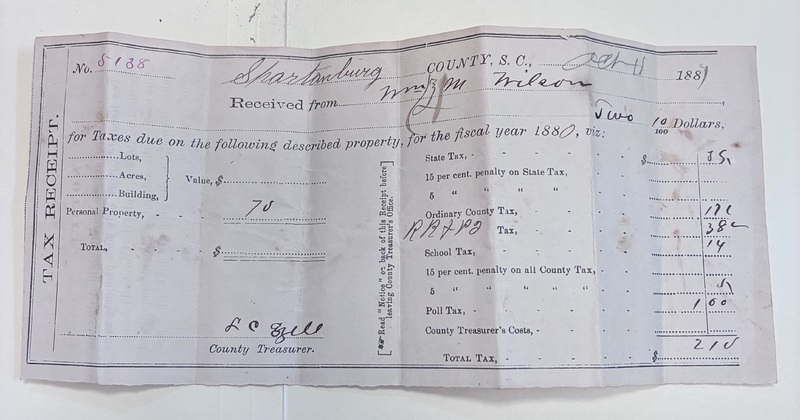 TAX RECEIPT.
No. 5138
Spartanburg COUNTY, S. C., 1881
Received from M Wilson
Two 10/100 Dollars,
for Taxes due on the following described property, for the fiscal year 1880, viz:
Lots,
Acres,
Building,
Value, $
Personal Property, - - 70
TOTAL, - - $
County Treasurer.
[Read "Notice" on back of this Receipt before leaving County Treasurer's Office.]
State Tax, - - - $ 35
15 per cent. penalty on State Tax,
5 " " " "
Ordinary County Tax,
Tax,
School Tax, 14
15 per cent. penalty on all County Tax, -
5 " " " " "
Poll Tax, 1 00
County Treasurer's Costs, -
TOTAL TAX, - - - - $ 2 10